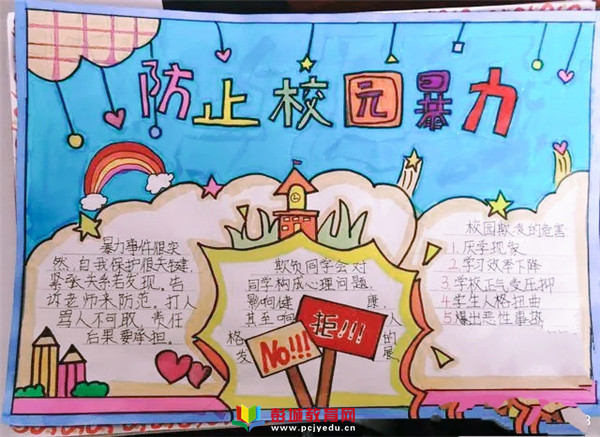 防止校园暴力
暴力事件很突
然,自我保护很关键,
紧张关系若发现,告
诉老师来防范,打人
骂人不可取,责任
后果要承担。
欺负同学会对
同学构成心理问题,
影响健 康,
甚至 响 人
格 的
发 展
No!!!
拒!!!
校园欺凌的危害
1.厌学现象
2.学习效率下降
3.学校正气受压抑
4.学生人格扭曲
5.爆出恶性事故
彭城教育网
www.pcjyedu.cn